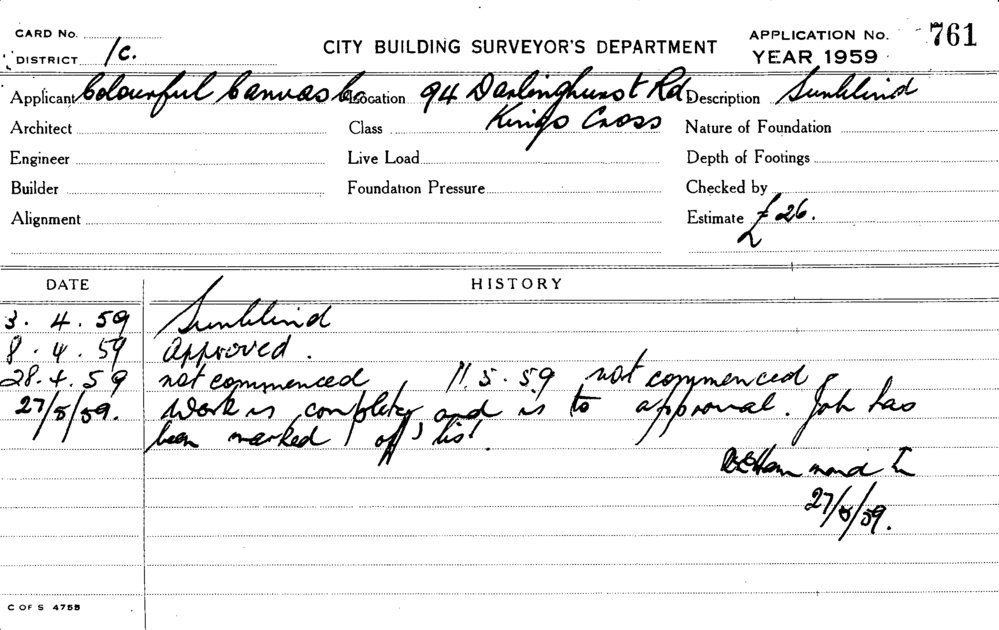 CARD No.
DISTRICT 1C.
CITY BUILDING SURVEYOR'S DEPARTMENT
APPLICATION No. 761
YEAR 1959
Applicant Colourful Canvas Co Location 94 Darlinghurst Rd Description Sunblind
Architect Class Kings Cross Nature of Foundation
Engineer Live Load Depth of Footings
Builder Foundation Pressure Checked by
Alignment Estimate £26.
DATE HISTORY
3.4.59 Sunblind
8.4.59 Approved.
28.4.59 not commenced, 11.5.59 not commenced
27/5/59. Work is complete and is to approval. Job has
been marked off list.
Hammond
27/5/59.
C OF S 4755